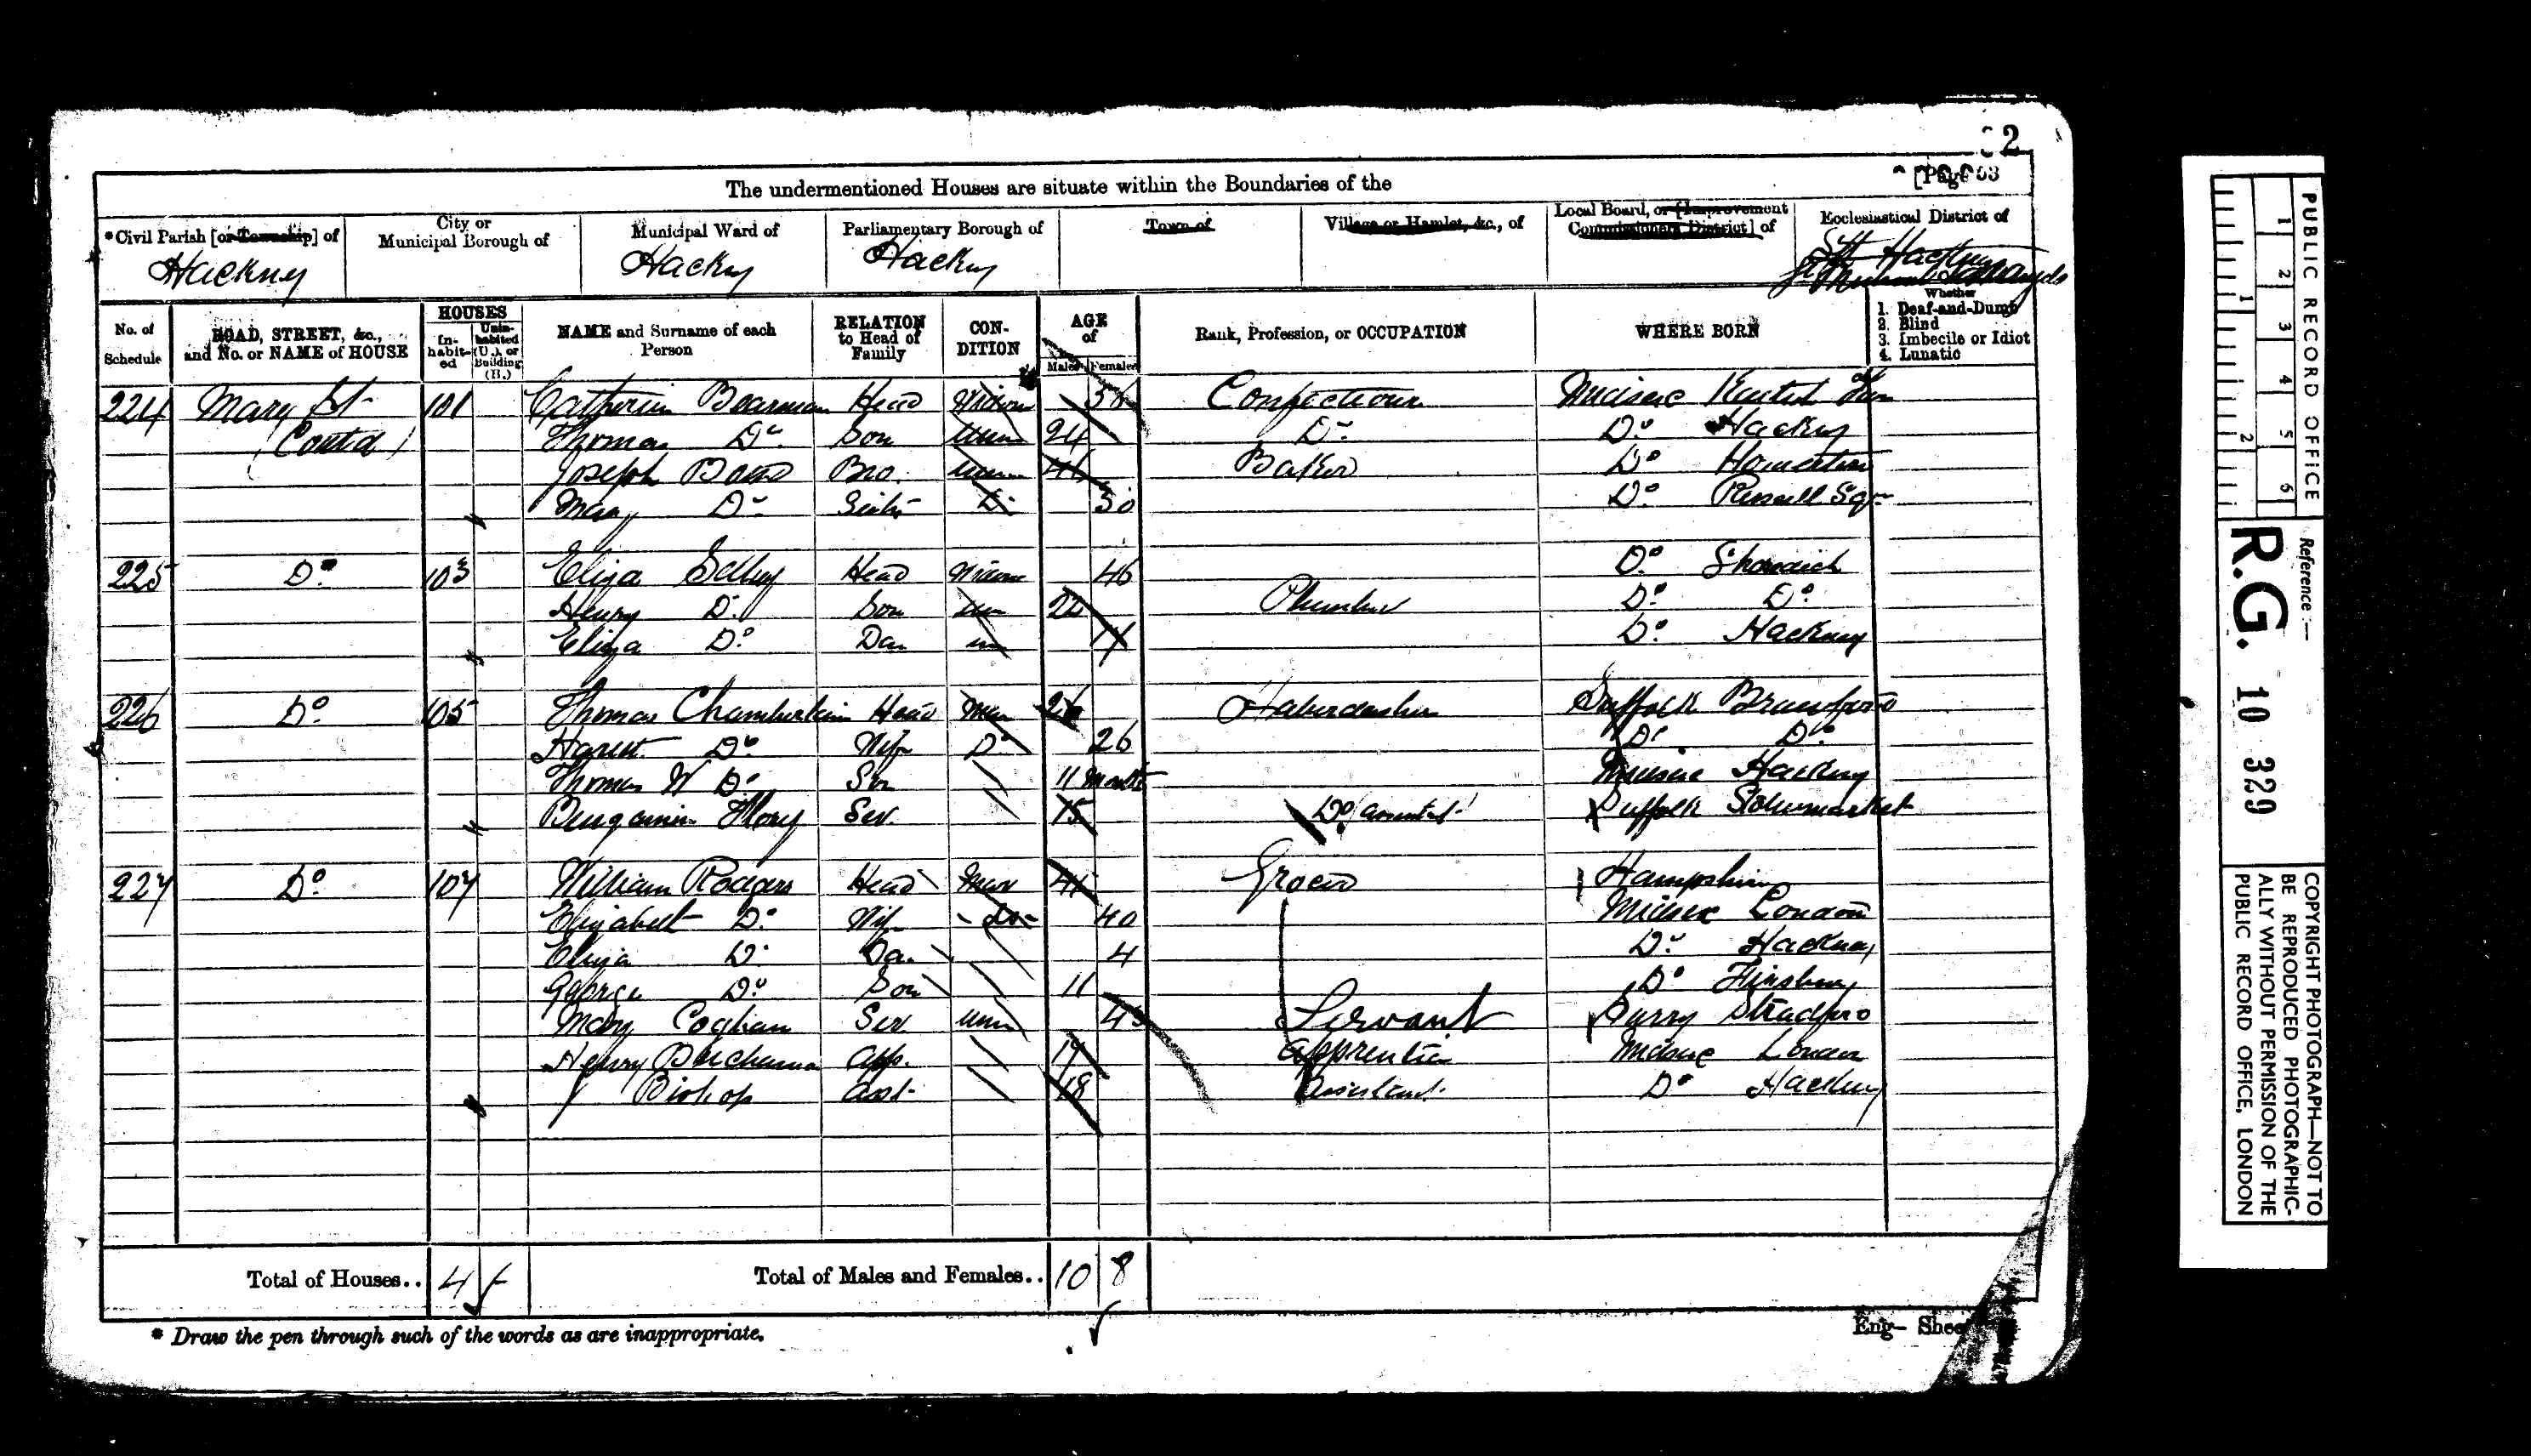 2
[Page 63
The undermentioned Houses are situate within the Boundaries of the
*Civil Parish [or Township] of
City or Municipal Borough of
Municipal Ward of
Parliamentary Borough of
Town of
Village or Hamlet, &c., of
Local Board, or [Improvement Commissioners District] of
Ecclesiastical District of
Hackney Hackney Hackney Sth Hackney
No. of Schedule
ROAD, STREET, &c., and No. or NAME of HOUSE
HOUSES
Inhabited
Uninhabited (U.), or Building (B.)
NAME and Surname of each Person
RELATION to Head of Family
CONDITION
AGE of
Males Females
Rank, Profession, or OCCUPATION
WHERE BORN
Whether
1. Deaf-and-Dumb
2. Blind
3. Imbecile or Idiot
4. Lunatic
224 Mary St 101 Catherine Bearman Head Widow 56 Confectioner Middsex Kentish Town
(Contd) Thomas Do. Son Unm 24 Do. Do. Hackney
Joseph Bro. Unm 46 Baker Do Homerton
Mary Do Sister Do 50 Do. Russell Sqr
225 Do. 103 Eliza Selby Head Widow 46 Do. Shoreditch
Henry D. Son Un 22 Plumber Do. Do.
Eliza Do. Dau un Do. Hackney
226 Do. 105 Thomas Chamberlain Head Mar 26 Haberdasher Suffolk Bramford
Harriet Do. Wife Do 26 Do. Do.
Thomas W Do. Son 11 Months Middsex Hackney
Benjamin Flory Ser. 15 Do. assistant Suffolk Stowmarket
227 Do. 107 William Rodgers Head Mar 41 Grocer Hampshire
Elizabeth Do. Wife do 40 Middsex London
Eliza Do. Da. 4 Do. Hackney
George Do. Son 11 Do Finsbury
Mary Coghan Ser Unm 45 Servant Surry
Henry App. 17 Apprentice Middsex London
Bishop asst 18 Assistant. Do Hackney
Total of Houses.. 4
Total of Males and Females.. 10 8
* Draw the pen through such of the words as are inappropriate.
Eng- Shee
PUBLIC RECORD OFFICE
1 2 3 4 5 6
1 2
Reference:—
R.G. 10 329
COPYRIGHT PHOTOGRAPH—NOT TO
BE REPRODUCED PHOTOGRAPHIC-
ALLY WITHOUT PERMISSION OF THE
PUBLIC RECORD OFFICE, LONDON